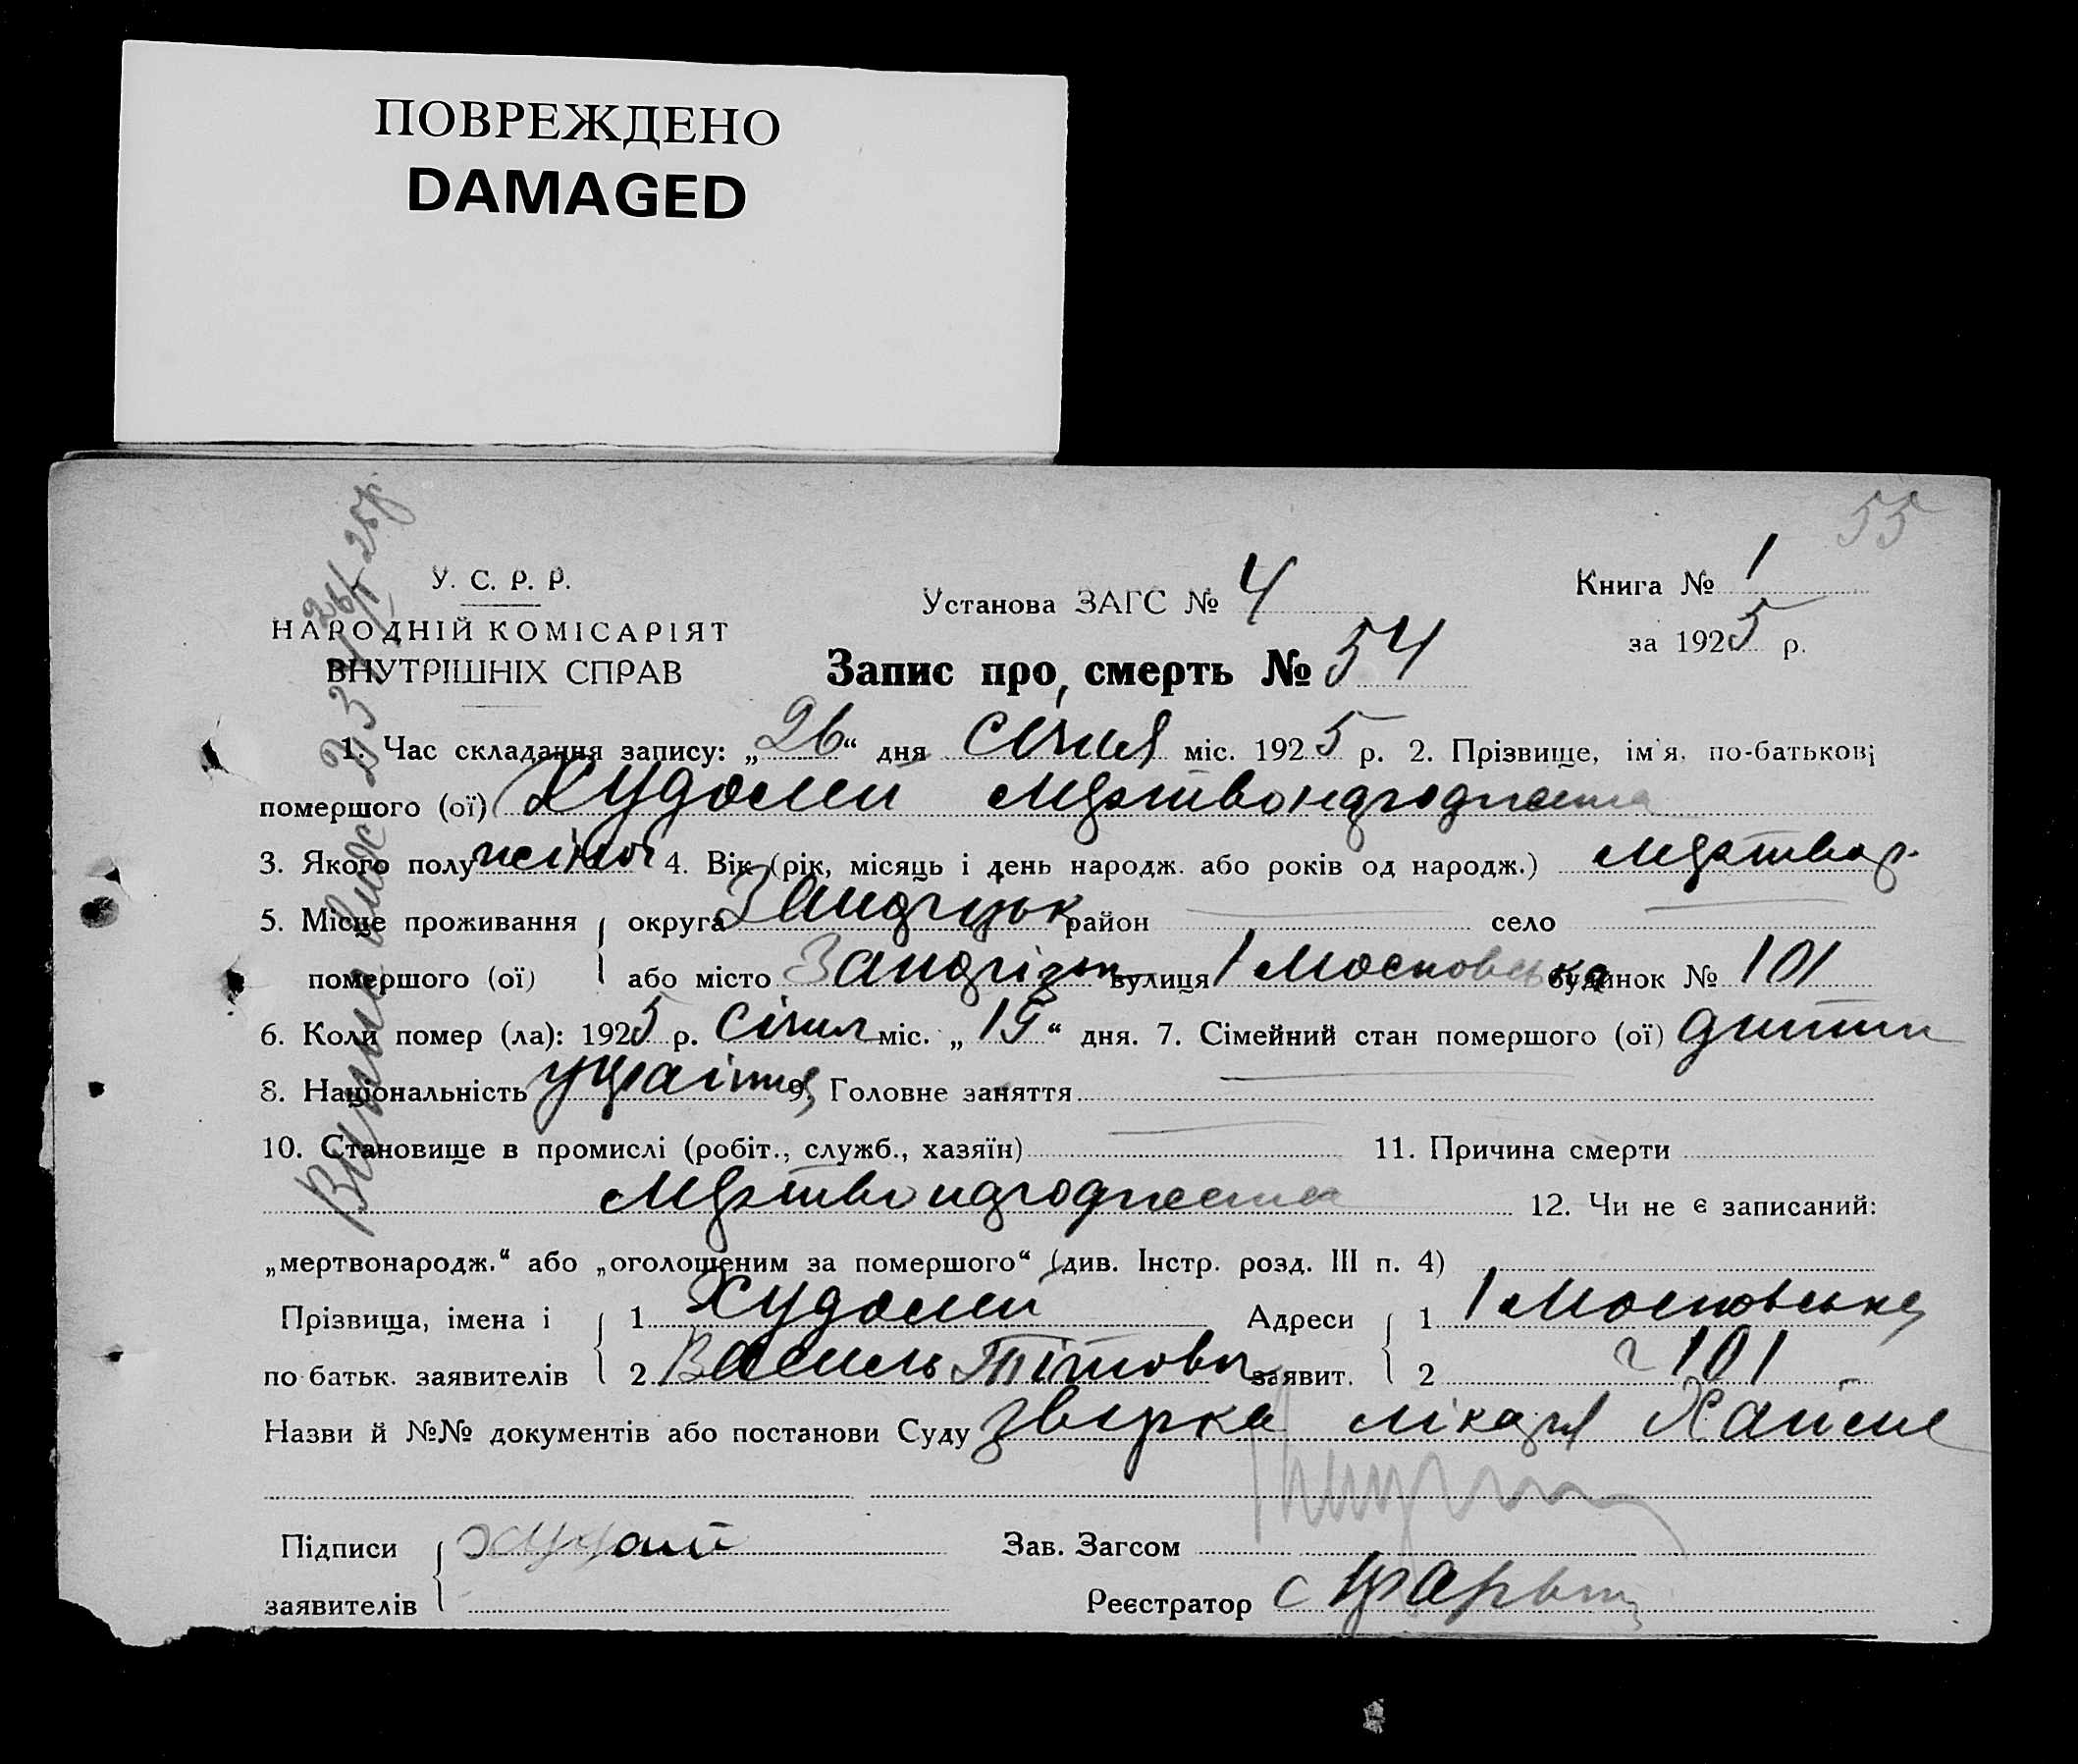 ПОВРЕЖДЕНО
DAMAGED
55
У. С. Р. Р.
НАРОДНІЙ КОМІСАРІЯТ
ВНУТРІШНІХ СПРАВ
Установа ЗАГС № 4
Книга № 1
за 1925 р.
Запис про смерть № 54
1. Час складання запису: „26“ дня січня міс. 1925 р. 2. Прізвище, ім'я, по-батькові
помершого (ої) Худолей мертвонароджена
3. Якого полу жіноч 4. Вік (рік, місяць і день народж. або років од народж.) мертвор.
5. Місце проживання округа район село
помершого (ої) або місто вулиця 1 Московська будинок № 101
6. Коли помер (ла): 1925 р. січня міс. „ “ дня. 7. Сімейний стан помершого (ої) дитина
8. Національність 9. Головне заняття
10. Становище в промислі (робіт., служб., хазяїн) 11. Причина смерти
мертвонароджена 12. Чи не є записаний:
„мертвонародж.“ або „оголошеним за помершого“ (див. Інстр. розд. III п. 4)
Прізвища, імена і 1 Худолей Адреси 1 1 Московська
по батьк. заявителів 2 Василь Тітович заявит. 2 101
Назви й №№ документів або постанови Суду лікаря
Підписи Зав. Загсом
заявителів Реєстратор